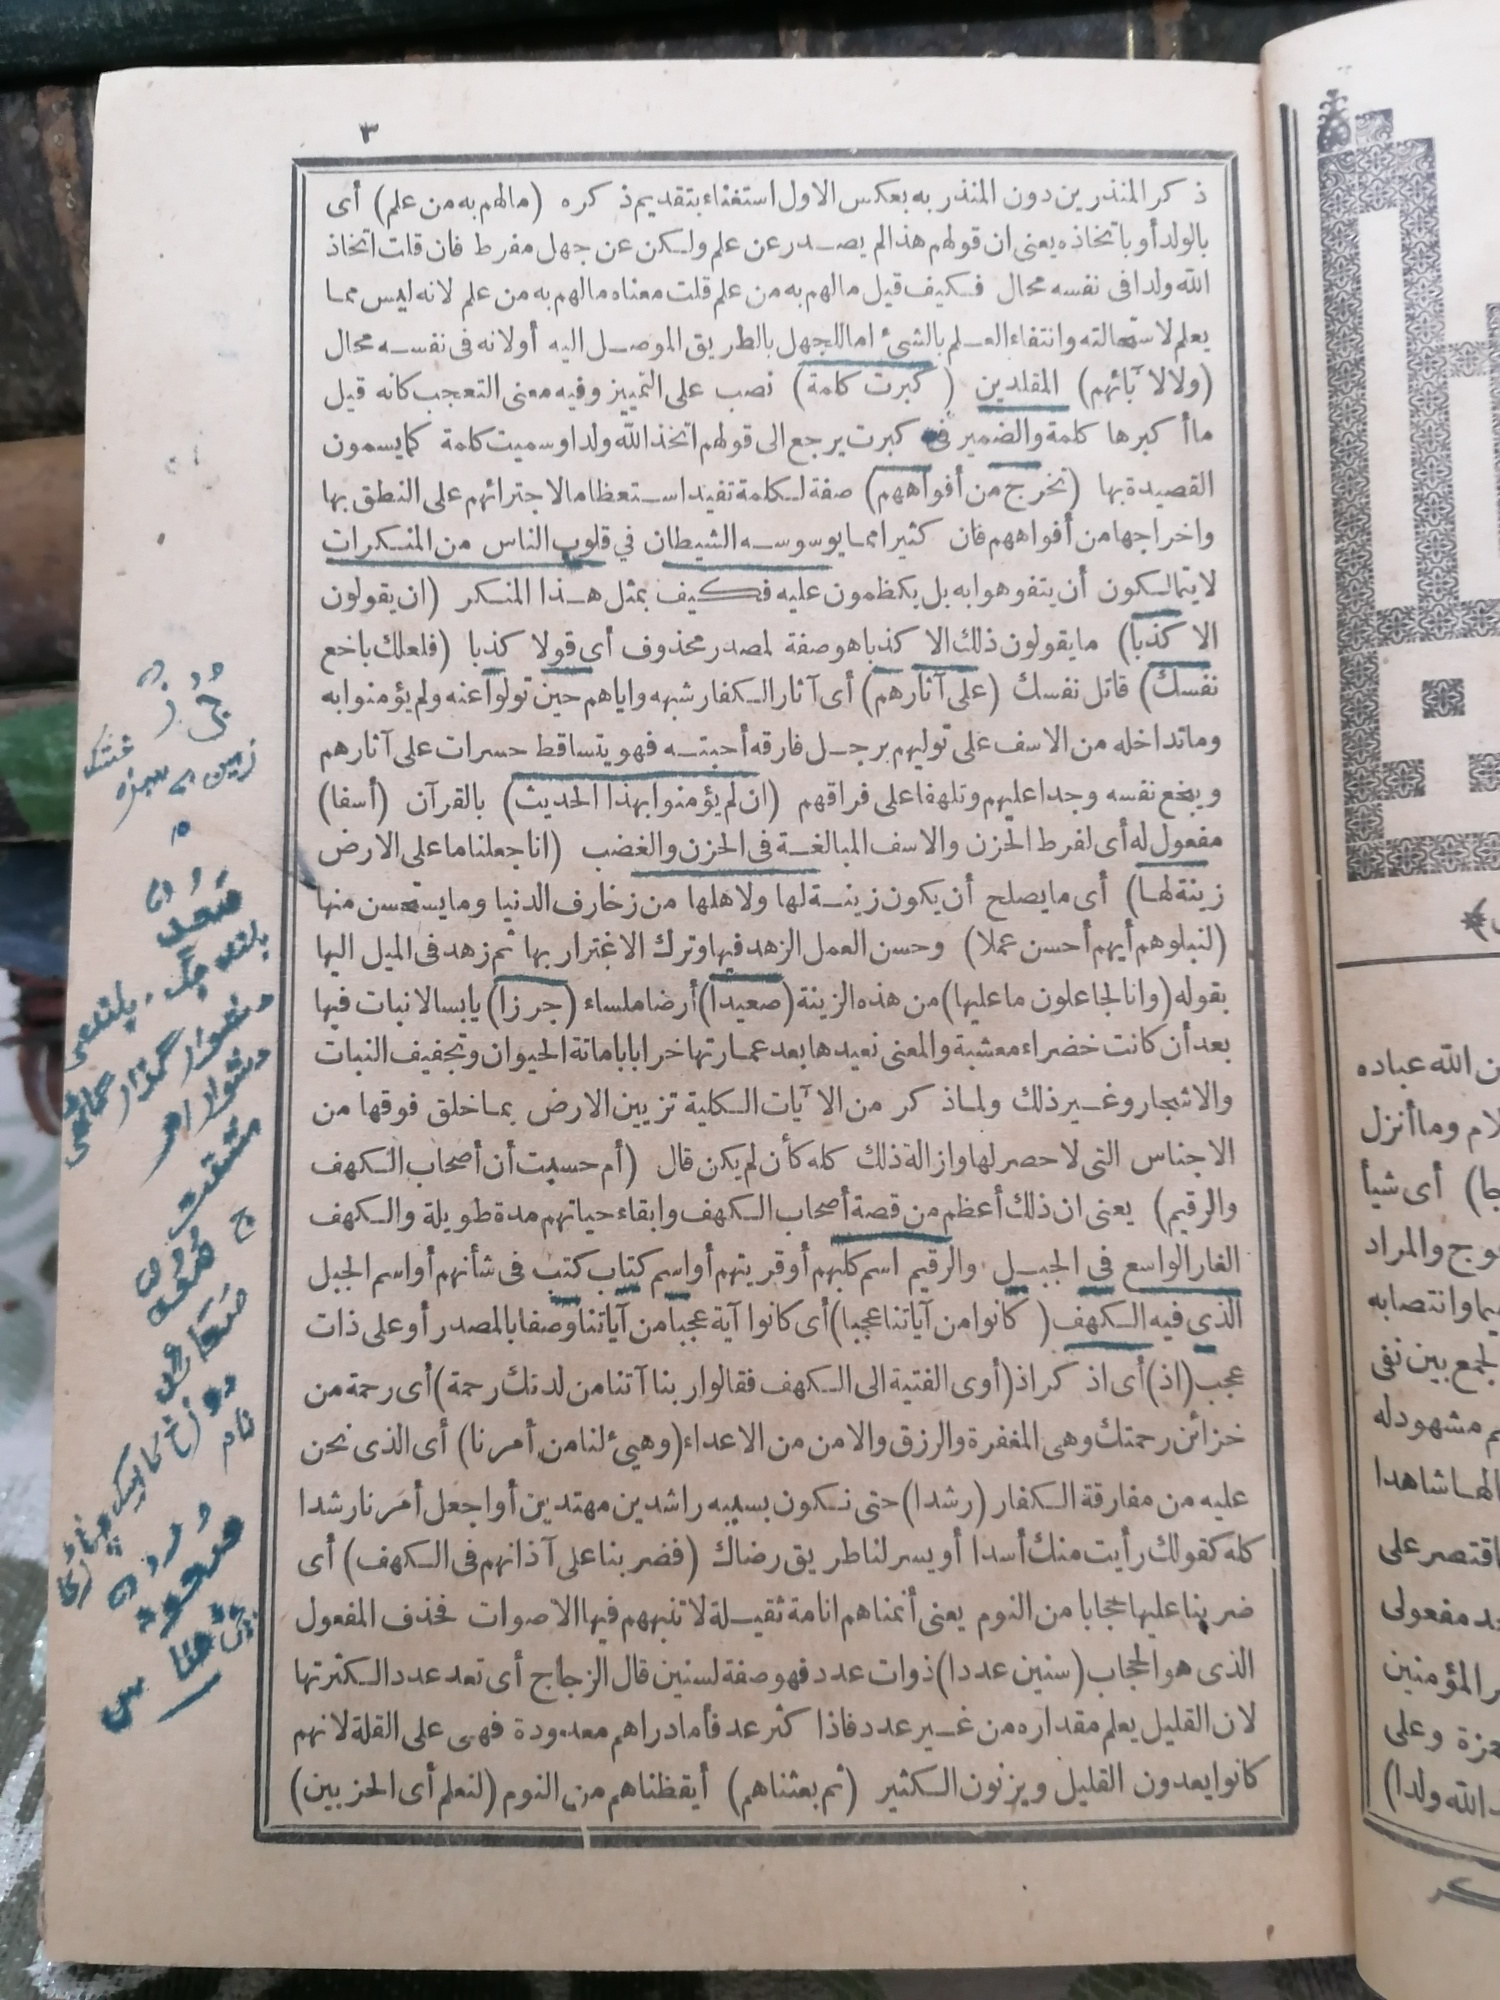 ٣
ذكر المنذرين دون المنذر به بعكس الاول استغناء بتقديم ذكره (مالهم به من علم) أى
بالولد أو باتخاذه يعنى ان قولهم هذا لم يصدر عن علم ولكن عن جهل مفرط فان قلت اتخاذ
الله ولدا فى نفسه محال فكيف قيل مالهم به من علم قلت معناه مالهم به من علم لانه ليس مما
يعلم لاستحالته وانتفاء العلم بالشئ اما للجهل بالطريق الموصل اليه أو لانه فى نفسه محال
(ولا لآبائهم) المقلدين (كبرت كلمة) نصب على التمييز وفيه معنى التعجب كانه قيل
ما أكبرها كلمة والضمير فى كبرت يرجع الى قولهم اتخذ الله ولدا وسميت كلمة كما يسمون
القصيدة بها (تخرج من أفواههم) صفة لكلمة تفيد استعظاما لاجترائهم على النطق بها
واخراجها من أفواههم فان كثيرا مما يوسوسه الشيطان في قلوب الناس من المنكرات
لا يتمالكون أن يتفوهوا به بل يكظمون عليه فكيف بمثل هذا المنكر (ان يقولون
الا كذبا) ما يقولون ذلك الا كذبا هو صفة لمصدر محذوف أى قولا كذبا (فلعلك باخع
نفسك) قاتل نفسك (على آثارهم) أى آثار الكفار شبهه واياهم حين تولوا عنه ولم يؤمنوا به
وما تداخله من الاسف على توليهم برجل فارقه أحبته فهو يتساقط حسرات على آثارهم
ويبخع نفسه وجدا عليهم وتلهفا على فراقهم (ان لم يؤمنوا بهذا الحديث) بالقرآن (أسفا)
مفعول له أى لفرط الحزن والاسف المبالغة فى الحزن والغضب (انا جعلنا ما على الارض
زينة لها) أى ما يصلح أن يكون زينة لها ولاهلها من زخارف الدنيا وما يستحسن منها
(لنبلوهم أيهم أحسن عملا) وحسن العمل الزهد فيها وترك الاغترار بها ثم زهد فى الميل اليها
بقوله (وانا لجاعلون ما عليها) من هذه الزينة (صعيدا) أرضا ملساء (جرزا) يابسا لا نبات فيها
بعد أن كانت خضراء معشبة والمعنى نعيدها بعد عمارتها خرابا باماتة الحيوان وتجفيف النبات
والاشجار وغير ذلك ولما ذكر من الآيات الكلية تزيين الارض بما خلق فوقها من
الاجناس التى لا حصر لها وازالة ذلك كله كأن لم يكن قال (أم حسبت أن أصحاب الكهف
والرقيم) يعنى ان ذلك أعظم من قصة أصحاب الكهف وابقاء حياتهم مدة طويلة والكهف
الغار الواسع فى الجبل والرقيم اسم كلبهم أو قريتهم أو اسم كتاب كتب فى شأنهم أو اسم الجبل
الذي فيه الكهف (كانوا من آياتنا عجبا) أى كانوا آية عجبا من آياتنا وصفا بالمصدر أو على ذات
عجب (اذ) أى اذكر اذ (أوى الفتية الى الكهف فقالوا ربنا آتنا من لدنك رحمة) أى رحمة من
خزائن رحمتك وهى المغفرة والرزق والامن من الاعداء (وهيئ لنا من أمرنا) أى الذى نحن
عليه من مفارقة الكفار (رشدا) حتى نكون بسببه راشدين مهتدين أو اجعل أمرنا رشدا
كله كقولك رأيت منك أسدا أو يسر لنا طريق رضاك (فضربنا على آذانهم فى الكهف) أى
ضربنا عليها حجابا من النوم يعنى أنمناهم انامة ثقيلة لا تنبههم فيها الاصوات فحذف المفعول
الذى هو الحجاب (سنين عددا) ذوات عدد فهو صفة لسنين قال الزجاج أى تعد عددا لكثرتها
لان القليل يعلم مقداره من غير عدد فاذا كثر عد فأما دراهم معدودة فهى على القلة لانهم
كانوا يعدون القليل ويزنون الكثير (ثم بعثناهم) أيقظناهم من النوم (لنعلم أى الحزبين)
زمين بے سبزه
مشقت
ن الله عباده
لام وما أنزل
أى شيأ
وج والمراد
يما وانتصابه
لجمع بين نفى
م مشهود له
لها شاهدا
اقتصر على
حد مفعولى
ر المؤمنين
وعلى
الله ولدا)